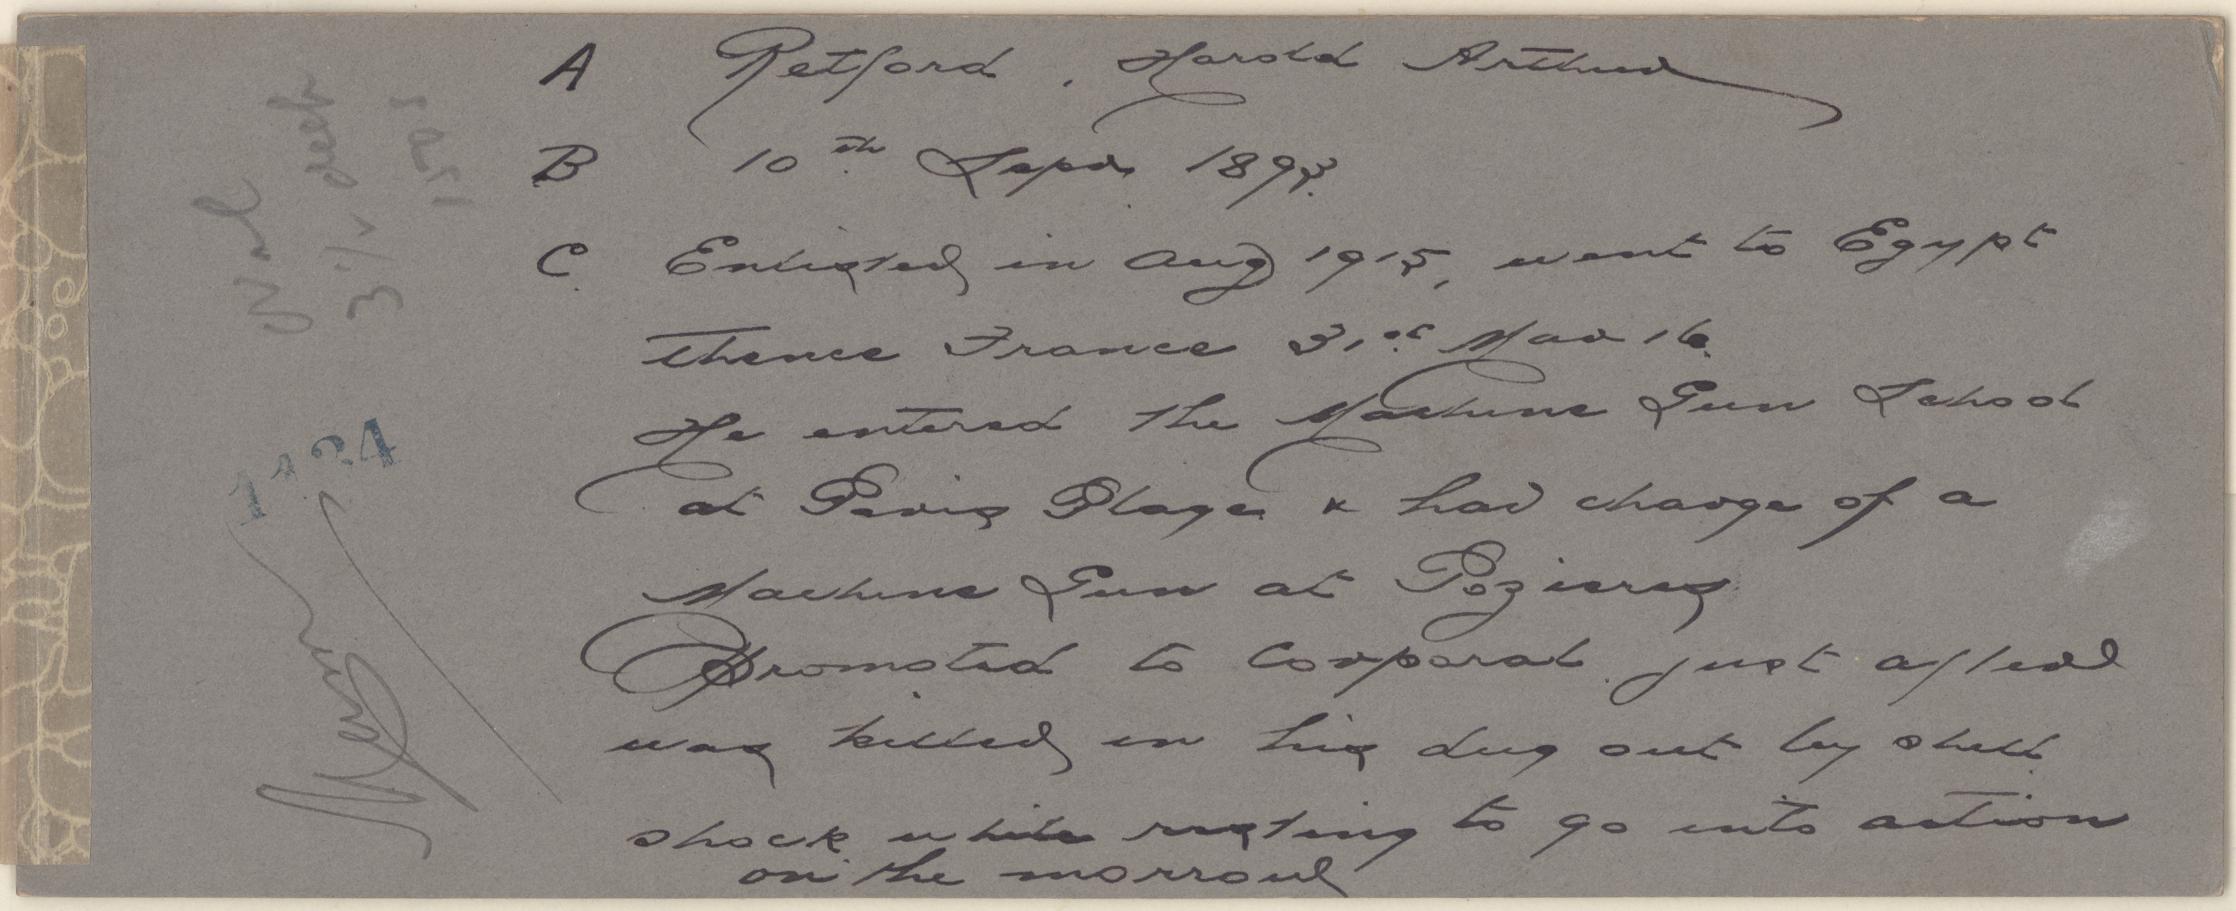 A Retford, Harold Arthur
B 10th Sept 1893.
C. Enlisted in Aug 1915, went to Egypt
thence France 31st Mar 16.
He entered the Machine Gun School
at Paris Plage & had charge of a
Machine Gun at Pozieres
Promoted to Corporal just after
was killed in his dug out by shell
shock while resting to go into action
on the morrow
1124
3 1/2